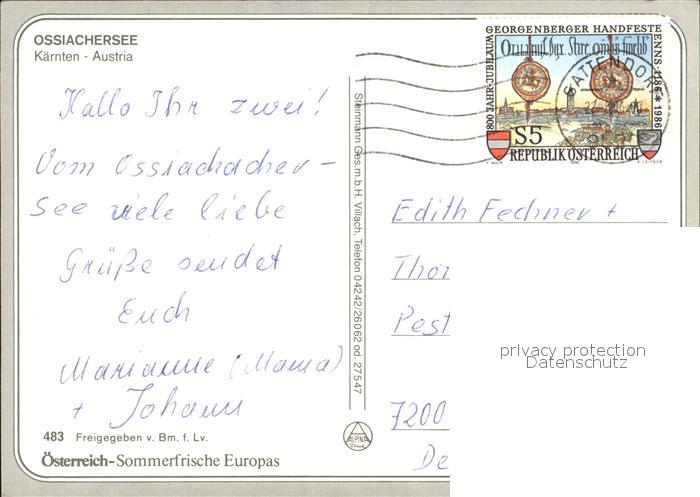 OSSIACHERSEE
Kärnten - Austria
Hallo Ihr zwei!
Vom Ossiachacher-
See viele liebe
Grüße sendet
Euch
Marianne (Mama)
+ Johann
483 Freigegeben v. Bm. f. Lv.
Österreich-Sommerfrische Europas
Steinmann Ges.m.b.H. Villach, Telefon 04242/26062 od. 27547
ALPINA
800 JAHR-JUBILÄUM GEORGENBERGER HANDFESTE ENNS 1186 * 1986
S5
REPUBLIK ÖSTERREICH
SATTENDORF
Edith Fechner +
Thor
Pest
7200
De
privacy protection
Datenschutz